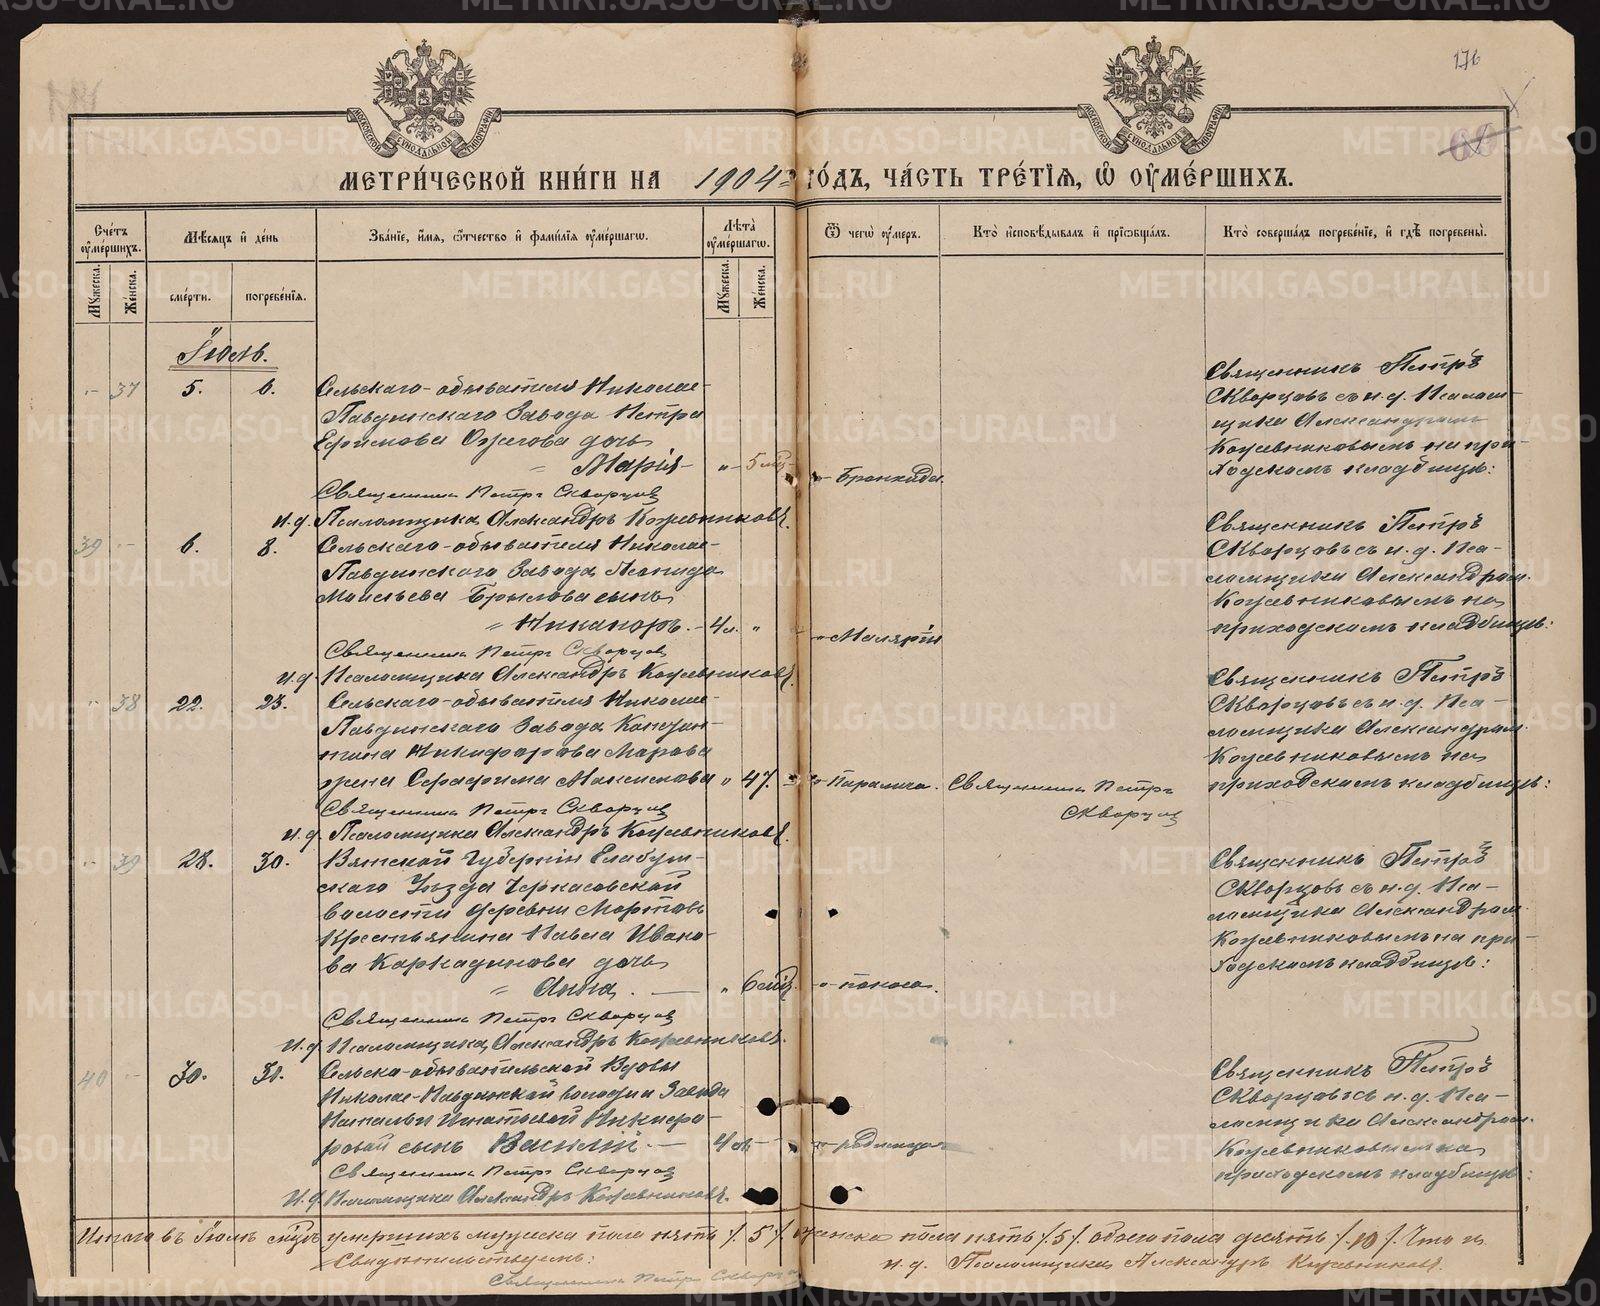 176
МЕТРИ́ЧЕСКОЙ КНИ́ГИ НА 1904 ГО́ДЪ, ЧА́СТЬ ТРЕ́ТІѦ, Ѡ ОУМЕ́РШИХЪ.
Сче́тъ оуме́ршихъ.
Мѣ́сяцъ и де́нь
Зва́ніе, и́мя, о́тчество и фами́лія оуме́ршагѡ.
Лѣта̀ оуме́ршагѡ.
Ѿ чегѡ̀ оу́меръ.
Кто̀ и҆сповѣ́дывалъ и҆ прїѡбща́лъ.
Кто̀ соверша́лъ погребе́ніе, и҆ гдѣ̀ погребены̀.
Му́жеска.
Же́нска.
сме́рти.
погребе́нія.
Му́жеска.
Же́нска.
Іюль.
37 5. 6. Сельскаго-обывателя Николае-
Павдинскаго Завода Петра
Ефимова Ожегова дочь
Марія 5 мѣс. Бронхида.
Священникъ Петръ
Скворцовъ съ и. д. Псалом-
щика Александромъ
Кожевниковымъ на при-
ходскомъ кладбищѣ:
Священникъ Петръ Скворцов
и. д. Псаломщика Александръ Кожевниковъ.
39 6. 8. Сельскаго-обывателя Николае-
Павдинскаго Завода Леонида
Моисѣева Брылова сынъ
Никаноръ. 4 л. Малярiи
Священникъ Петръ
Скворцовъ съ и. д. Пса-
ломщика Александром.
Кожевниковымъ на
приходскомъ кладбищѣ:
Священникъ Петръ Скворцов
и. д. Псаломщика Александръ Кожевниковъ.
38 22. 23. Сельскаго-обывателя Николае-
Павдинскаго Завода Констан-
тина Никифорова Марова
жена Серафима Максимова 47. Паралича. Священникъ Петръ
Скворцов
Священникъ Петръ
Скворцовъ съ и. д. Пса-
ломщика Александром.
Кожевниковымъ на
приходскомъ кладбищѣ:
Священникъ Петръ Скворцов
и. д. Псаломщика Александръ Кожевниковъ.
39 28. 30. Вятской Губерніи Елабуж-
скаго Уѣзда Черкасовской
волости деревни Мортовъ
Крестьянина Павла Ивано-
ва дочь
Анна. 6 мѣс. поноса.
Священникъ Петръ
Скворцовъ съ и. д. Пса-
ломщика Александром.
Кожевниковымъ на при-
ходскомъ кладбищѣ:
Священникъ Петръ Скворцов
и. д. Псаломщика Александръ Кожевниковъ.
40 30. 31. Сельско-обывательской Вдовы
Николае-Павдинской волости и Завода
Натальи Игнатьевой Никифо-
ровой сынъ Василій. 4 родимца
Священникъ Петръ
Скворцовъ съ и. д. Пса-
ломщика Александром.
Кожевниковымъ на
приходскомъ кладбищѣ:
Священникъ Петръ Скворцов
и. д. Псаломщика Александръ Кожевниковъ.
Итого въ Іюлѣ мѣсяцѣ умершихъ мужеска пола пять /.5/. женска пола пять /.5/. обоего пола десять /.10/. Что и
Свидѣтельствуемъ:
Священникъ Петръ Скворцов
и. д. Псаломщика Александръ Кожевниковъ.
METRIKI.GASO-URAL.RU